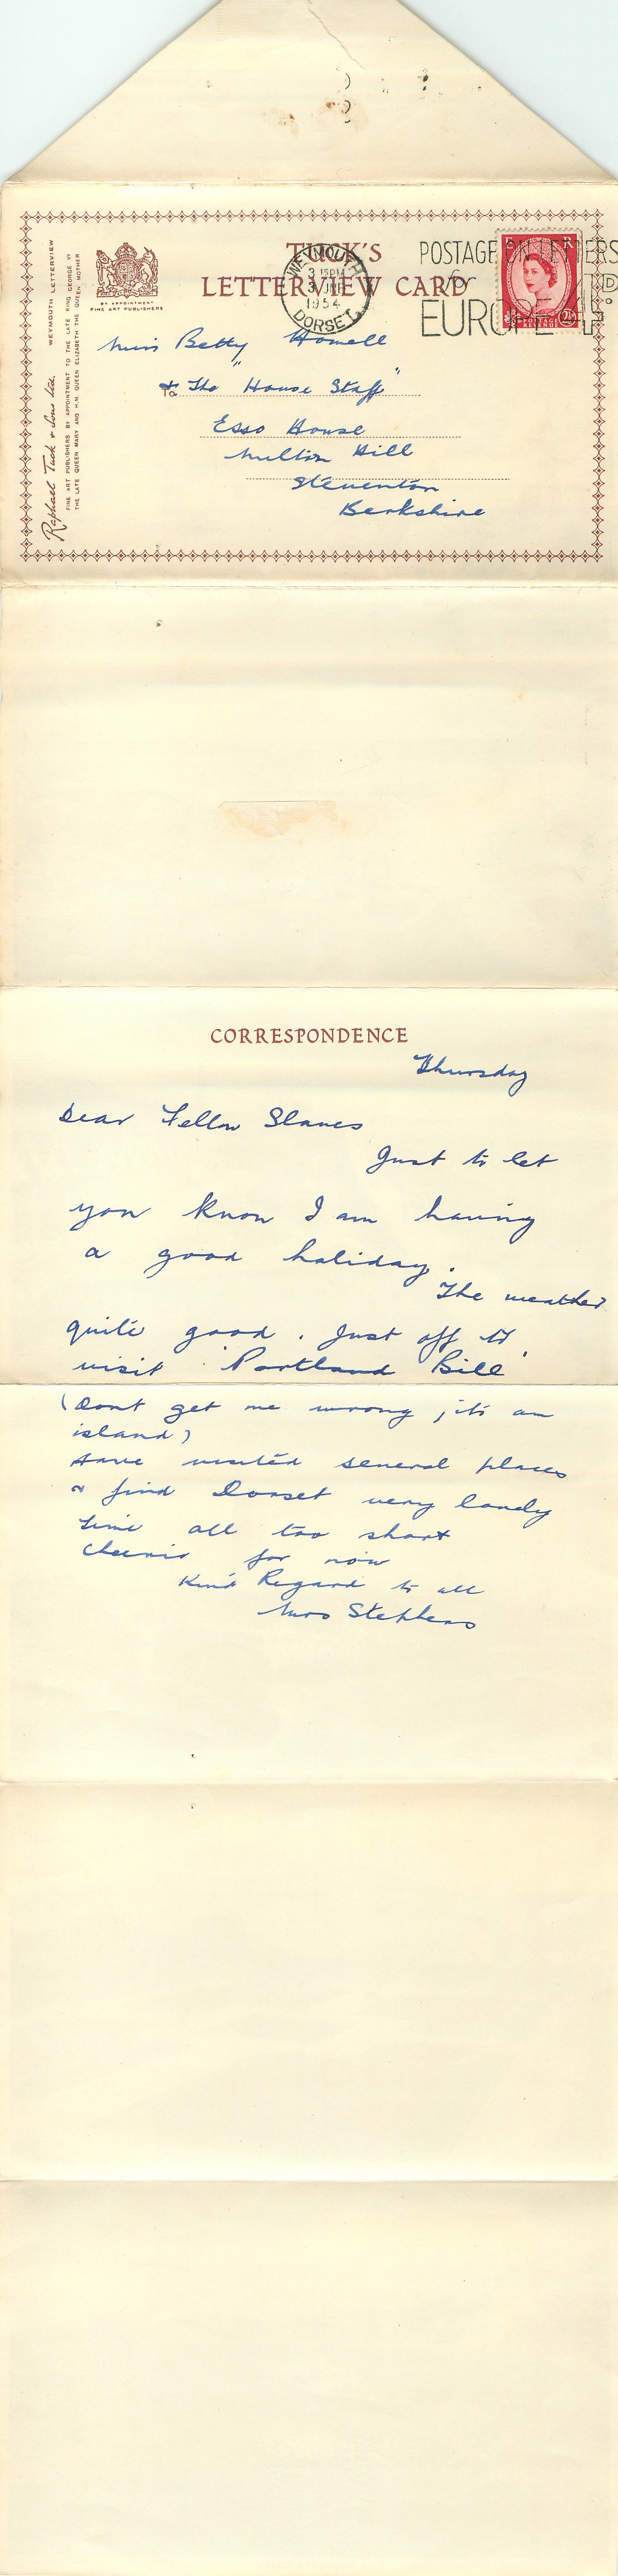 TUCK'S
LETTERVIEW CARD
WEYMOUTH LETTERVIEW
BY APPOINTMENT
FINE ART PUBLISHERS
Raphael Tuck & Sons Ltd.
FINE ART PUBLISHERS BY APPOINTMENT TO THE LATE KING GEORGE VI
THE LATE QUEEN MARY AND H.M. QUEEN ELIZABETH THE QUEEN MOTHER
WEYMOUTH
3 15PM
3 JNE
1954
DORSET
POSTAGE ON LETTERS
for
EUROPE 4D
Miss Betty Howell
To
& The "House Staff"
Esso House
Milton Hill
Steventon
Berkshire
CORRESPONDENCE
Thursday
Dear Fellow Slaves
Just to let
you know I am having
a good holiday.
The weather
quite good. Just off to
visit 'Portland Bill'
(Dont get me wrong, its an
island)
Have visited several places
& find Dorset very lovely
Time all too short
Cheerio for now
Kind Regard to all
Mrs Stephens